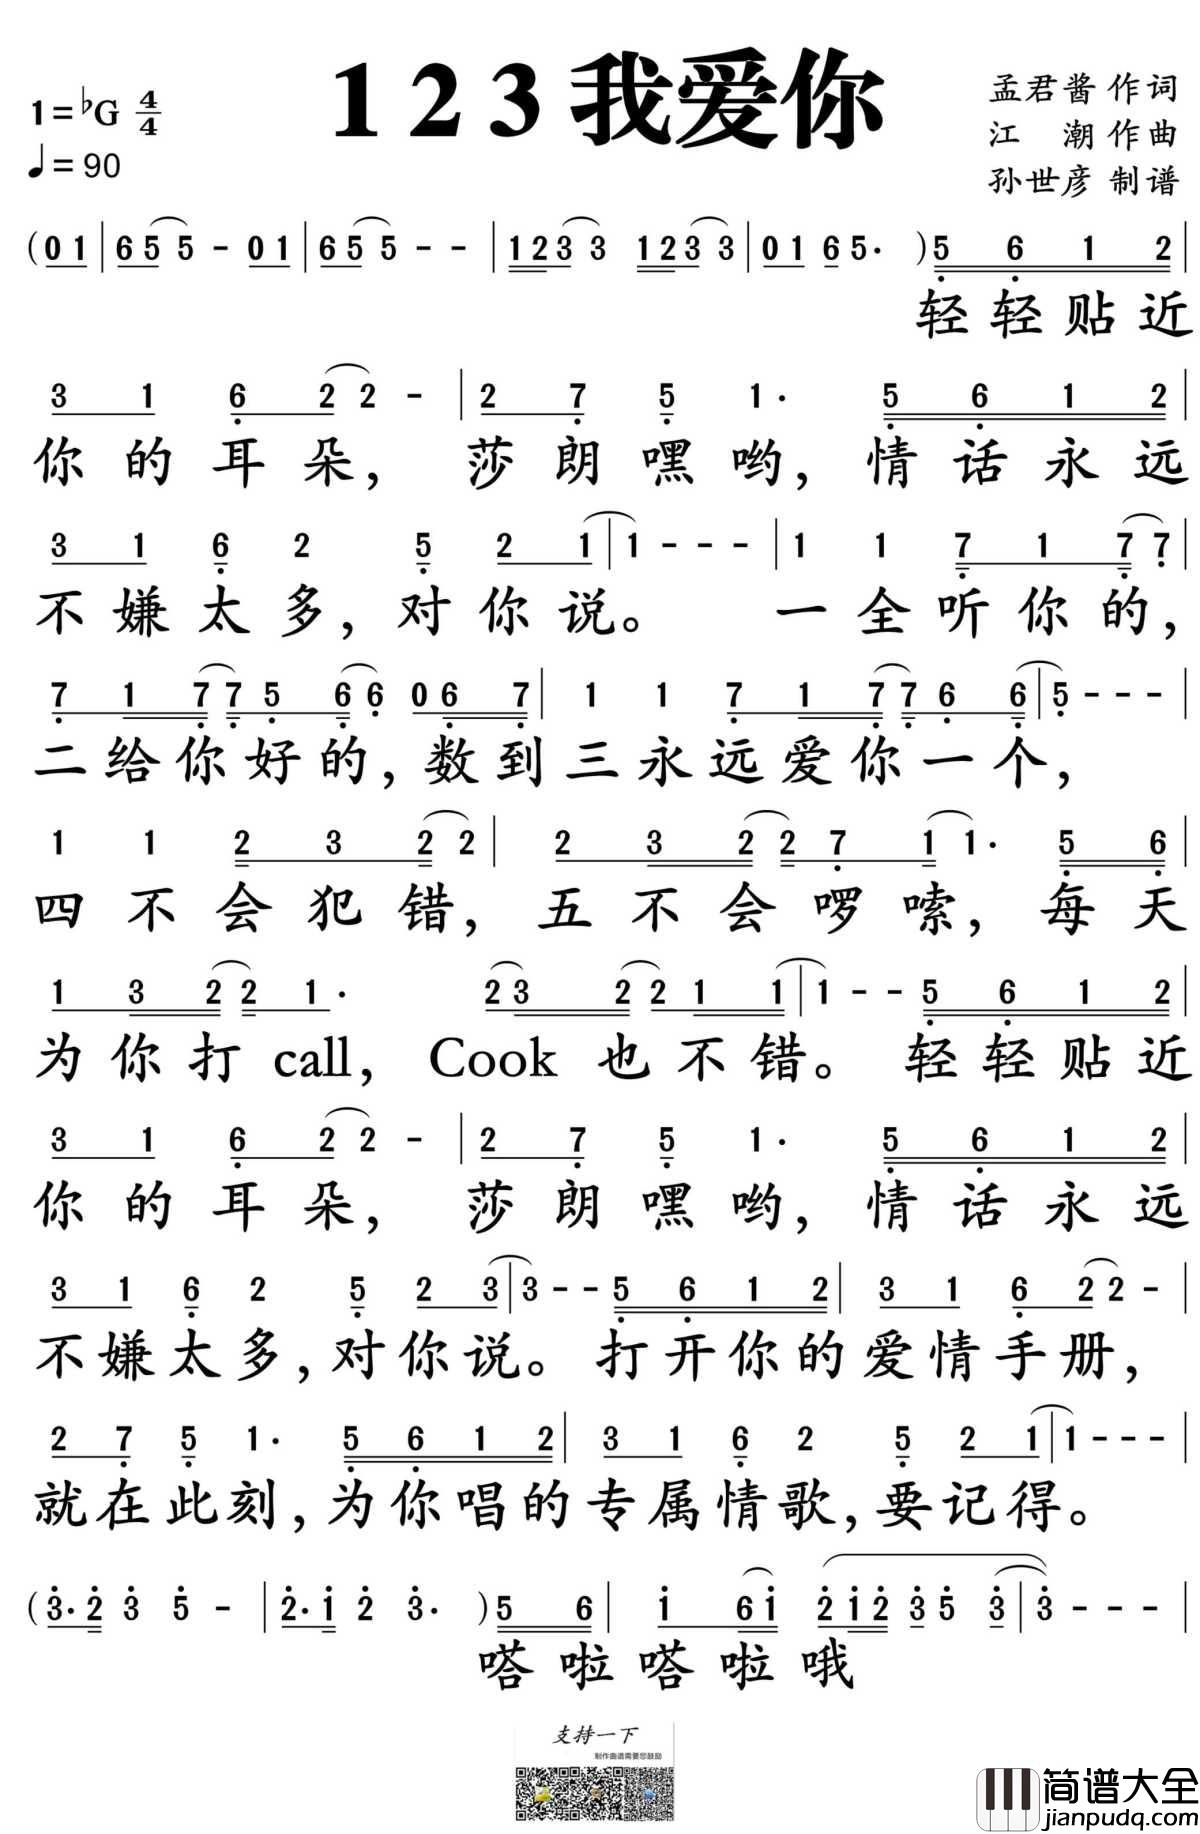 123我爱你
1=♭G 4/4
♩=90
孟君酱 作词
江 潮 作曲
孙世彦 制谱
(0 1 | 6 5 5 - 0 1 | 6 5 5 - - | 1 2 3 3 1 2 3 3 | 0 1 6 5· ) 5 6 1 2 |
轻轻贴近
3 1 6 2 2 - | 2 7 5 1· 5 6 1 2 |
你的耳朵，莎朗嘿哟，情话永远
3 1 6 2 5 2 1 | 1 - - - | 1 1 7 1 7 7 |
不嫌太多，对你说。一全听你的，
7 1 7 7 5 6 6 0 6 7 | 1 1 7 1 7 7 6 6 | 5 - - - |
二给你好的，数到三永远爱你一个，
1 1 2 3 2 2 | 2 3 2 2 7 1 1· 5 6 |
四不会犯错，五不会啰嗦，每天
1 3 2 2 1· 2 3 2 2 1 1 | 1 - - 5 6 1 2 |
为你打call，Cook也不错。轻轻贴近
3 1 6 2 2 - | 2 7 5 1· 5 6 1 2 |
你的耳朵，莎朗嘿哟，情话永远
3 1 6 2 5 2 3 | 3 - - 5 6 1 2 | 3 1 6 2 2 - |
不嫌太多，对你说。打开你的爱情手册，
2 7 5 1· 5 6 1 2 | 3 1 6 2 5 2 1 | 1 - - - |
就在此刻，为你唱的专属情歌，要记得。
(3·2 3 5 - | 2·1 2 3· ) 5 6 | 1 6 1 2 1 2 3 5 3 | 3 - - - |
嗒啦嗒啦哦
支持一下
制作曲谱需要您鼓励
简谱大全
jianpudq.com